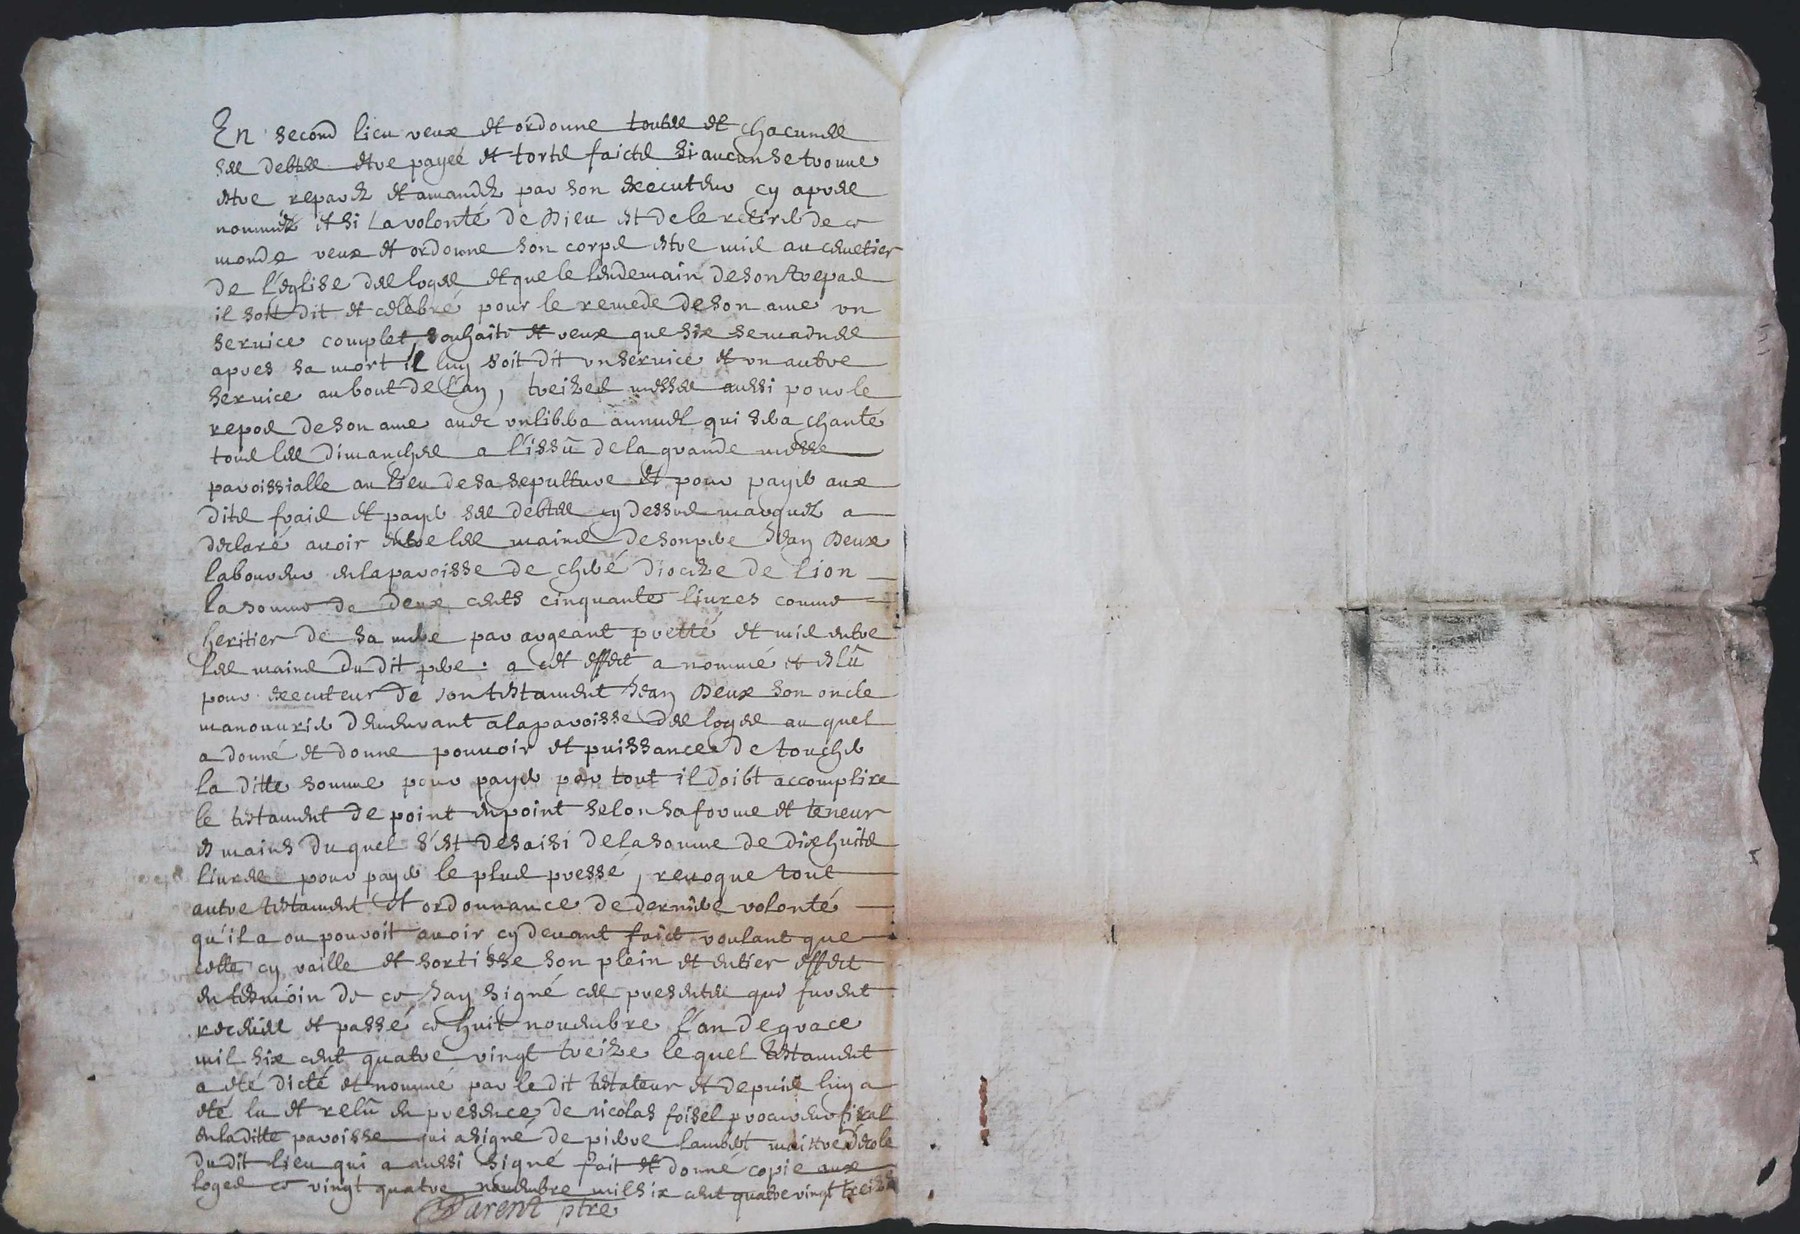 En second lieu veux et ordonne toutes et chacunes
ses debtes etre payéé et torts faicts si aucun se trouve
etre reparez et amandez par son executeur cy apres
nommez et si La volonté de Dieu est de le retirer de ce
monde veux et ordonne son corps etre mis au cemetier
de l'eglise des loges et que le lendemain de son trepas
il soit dit et celebré pour le remede de son ame un
service complet, souhaite et veux que six semaines
apres sa mort il luy soit dit un service et un autre
service au bout de l'an, treizes messes aussi pour le
repos de son ame avec un libera annuel qui sera chanté
tous les dimanches a l'issû de la grande messe
paroissialle au lieu de sa sepulture et pour payer aux
dits frais et payer ses debtes cy dessus marquez a
declaré avoir entre les mains de son pere Jean Deux
laboureur en la paroisse de diocize de Lion
la somme de deux cents cinquante livres comme
heritier de sa mere par argeant pretté et mis entre
les mains du dit pere. a cet effect a nommé et elû
pour executeur de son testament Jean Deux son oncle
manouvrier demeurant a la paroisse des loges au quel
a donné et donne pouvoir et puissance de toucher
la ditte somme pour payer par tout il doibt accomplire
le testament de point en point selon sa forme et teneur
es mains du quel s'est desaisi de la somme de dixhuits
livres pour payer le plus pressé, revoque tout
autre testament et ordonnance de derniere volonté
qu'il a ou pouvoit avoir cy devant faict voulant que
cette cy vaille et sortisse son plein et entier effect
en temoin de ce Jay signé ces presentes que furent
receues et passé ce huit novembre l'an de grace
mil six cent quatre vingt treize le quel testament
a eté dicté et nommé par le dit testateur et depuis luy a
eté lu et relû en presence de nicolas foisel procureur fiscal
en la ditte paroisse qui a signé de pierre lambert maitre d'ecole
du dit lieu qui a aussi signé fait et donné copie aux
loges ce vingt quatre novembre mil six cent quatre vingt treize
Parent ptre